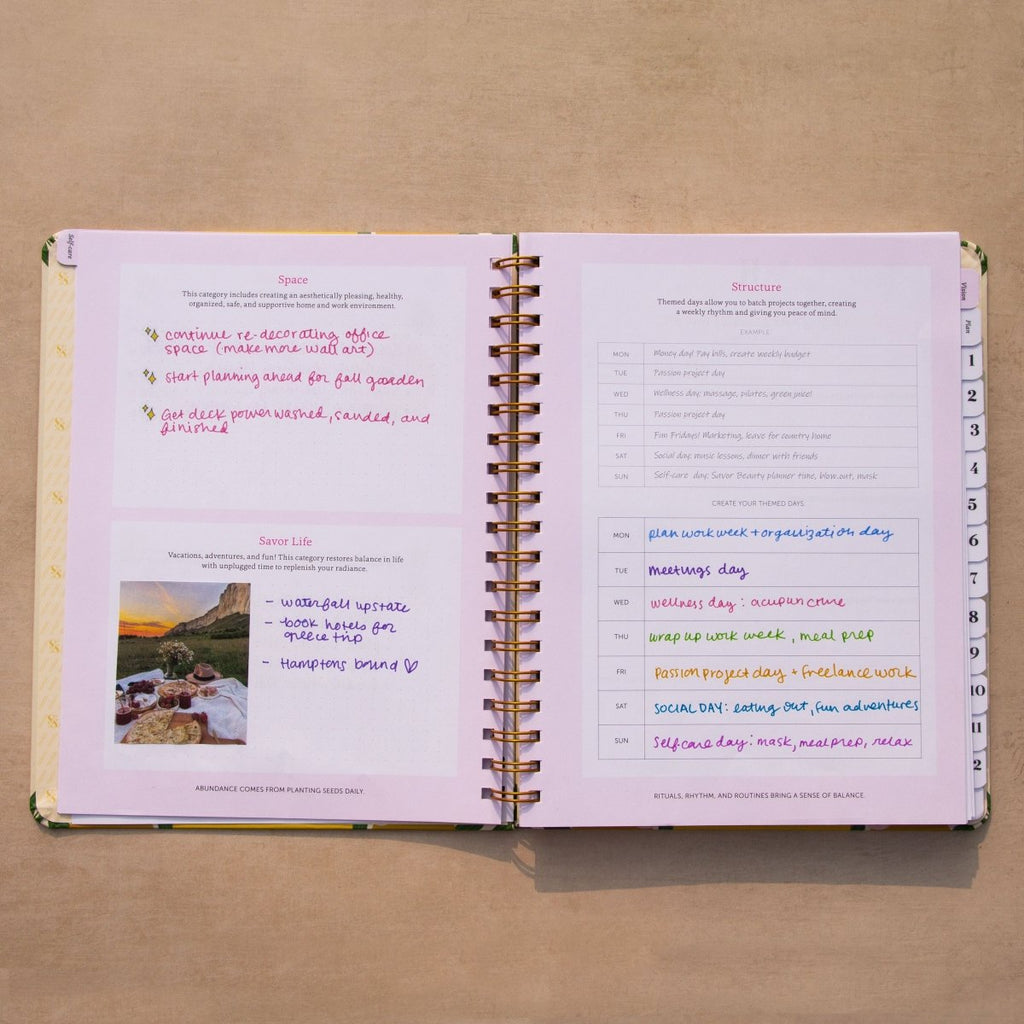 Self-care
Space
This category includes creating an aesthetically pleasing, healthy,
organized, safe, and supportive home and work environment.
continue re-decorating office
space (make more wall art)
start planning ahead for fall garden
Get deck power washed, sanded, and
finished
Savor Life
Vacations, adventures, and fun! This category restores balance in life
with unplugged time to replenish your radiance.
- waterfall upstate
- book hotels for
greece trip
- Hamptons bound ♡
ABUNDANCE COMES FROM PLANTING SEEDS DAILY.
Structure
Themed days allow you to batch projects together, creating
a weekly rhythm and giving you peace of mind.
EXAMPLE:
MON Money day! Pay bills, create weekly budget
TUE Passion project day
WED Wellness day: massage, pilates, green juice!
THU Passion project day
FRI Fun Fridays! Marketing, leave for country home
SAT Social day: music lessons, dinner with friends
SUN Self-care day: Savor Beauty planner time, blow out, mask
CREATE YOUR THEMED DAYS:
MON plan work week + organization day
TUE meetings day
WED wellness day: acupuncture
THU wrap up work week, meal prep
FRI Passion project day + freelance work
SAT SOCIAL DAY: eating out, fun adventures
SUN Self care day: mask, meal prep, relax
RITUALS, RHYTHM, AND ROUTINES BRING A SENSE OF BALANCE.
Vision
Plan
1
2
3
4
5
6
7
8
9
10
11
2